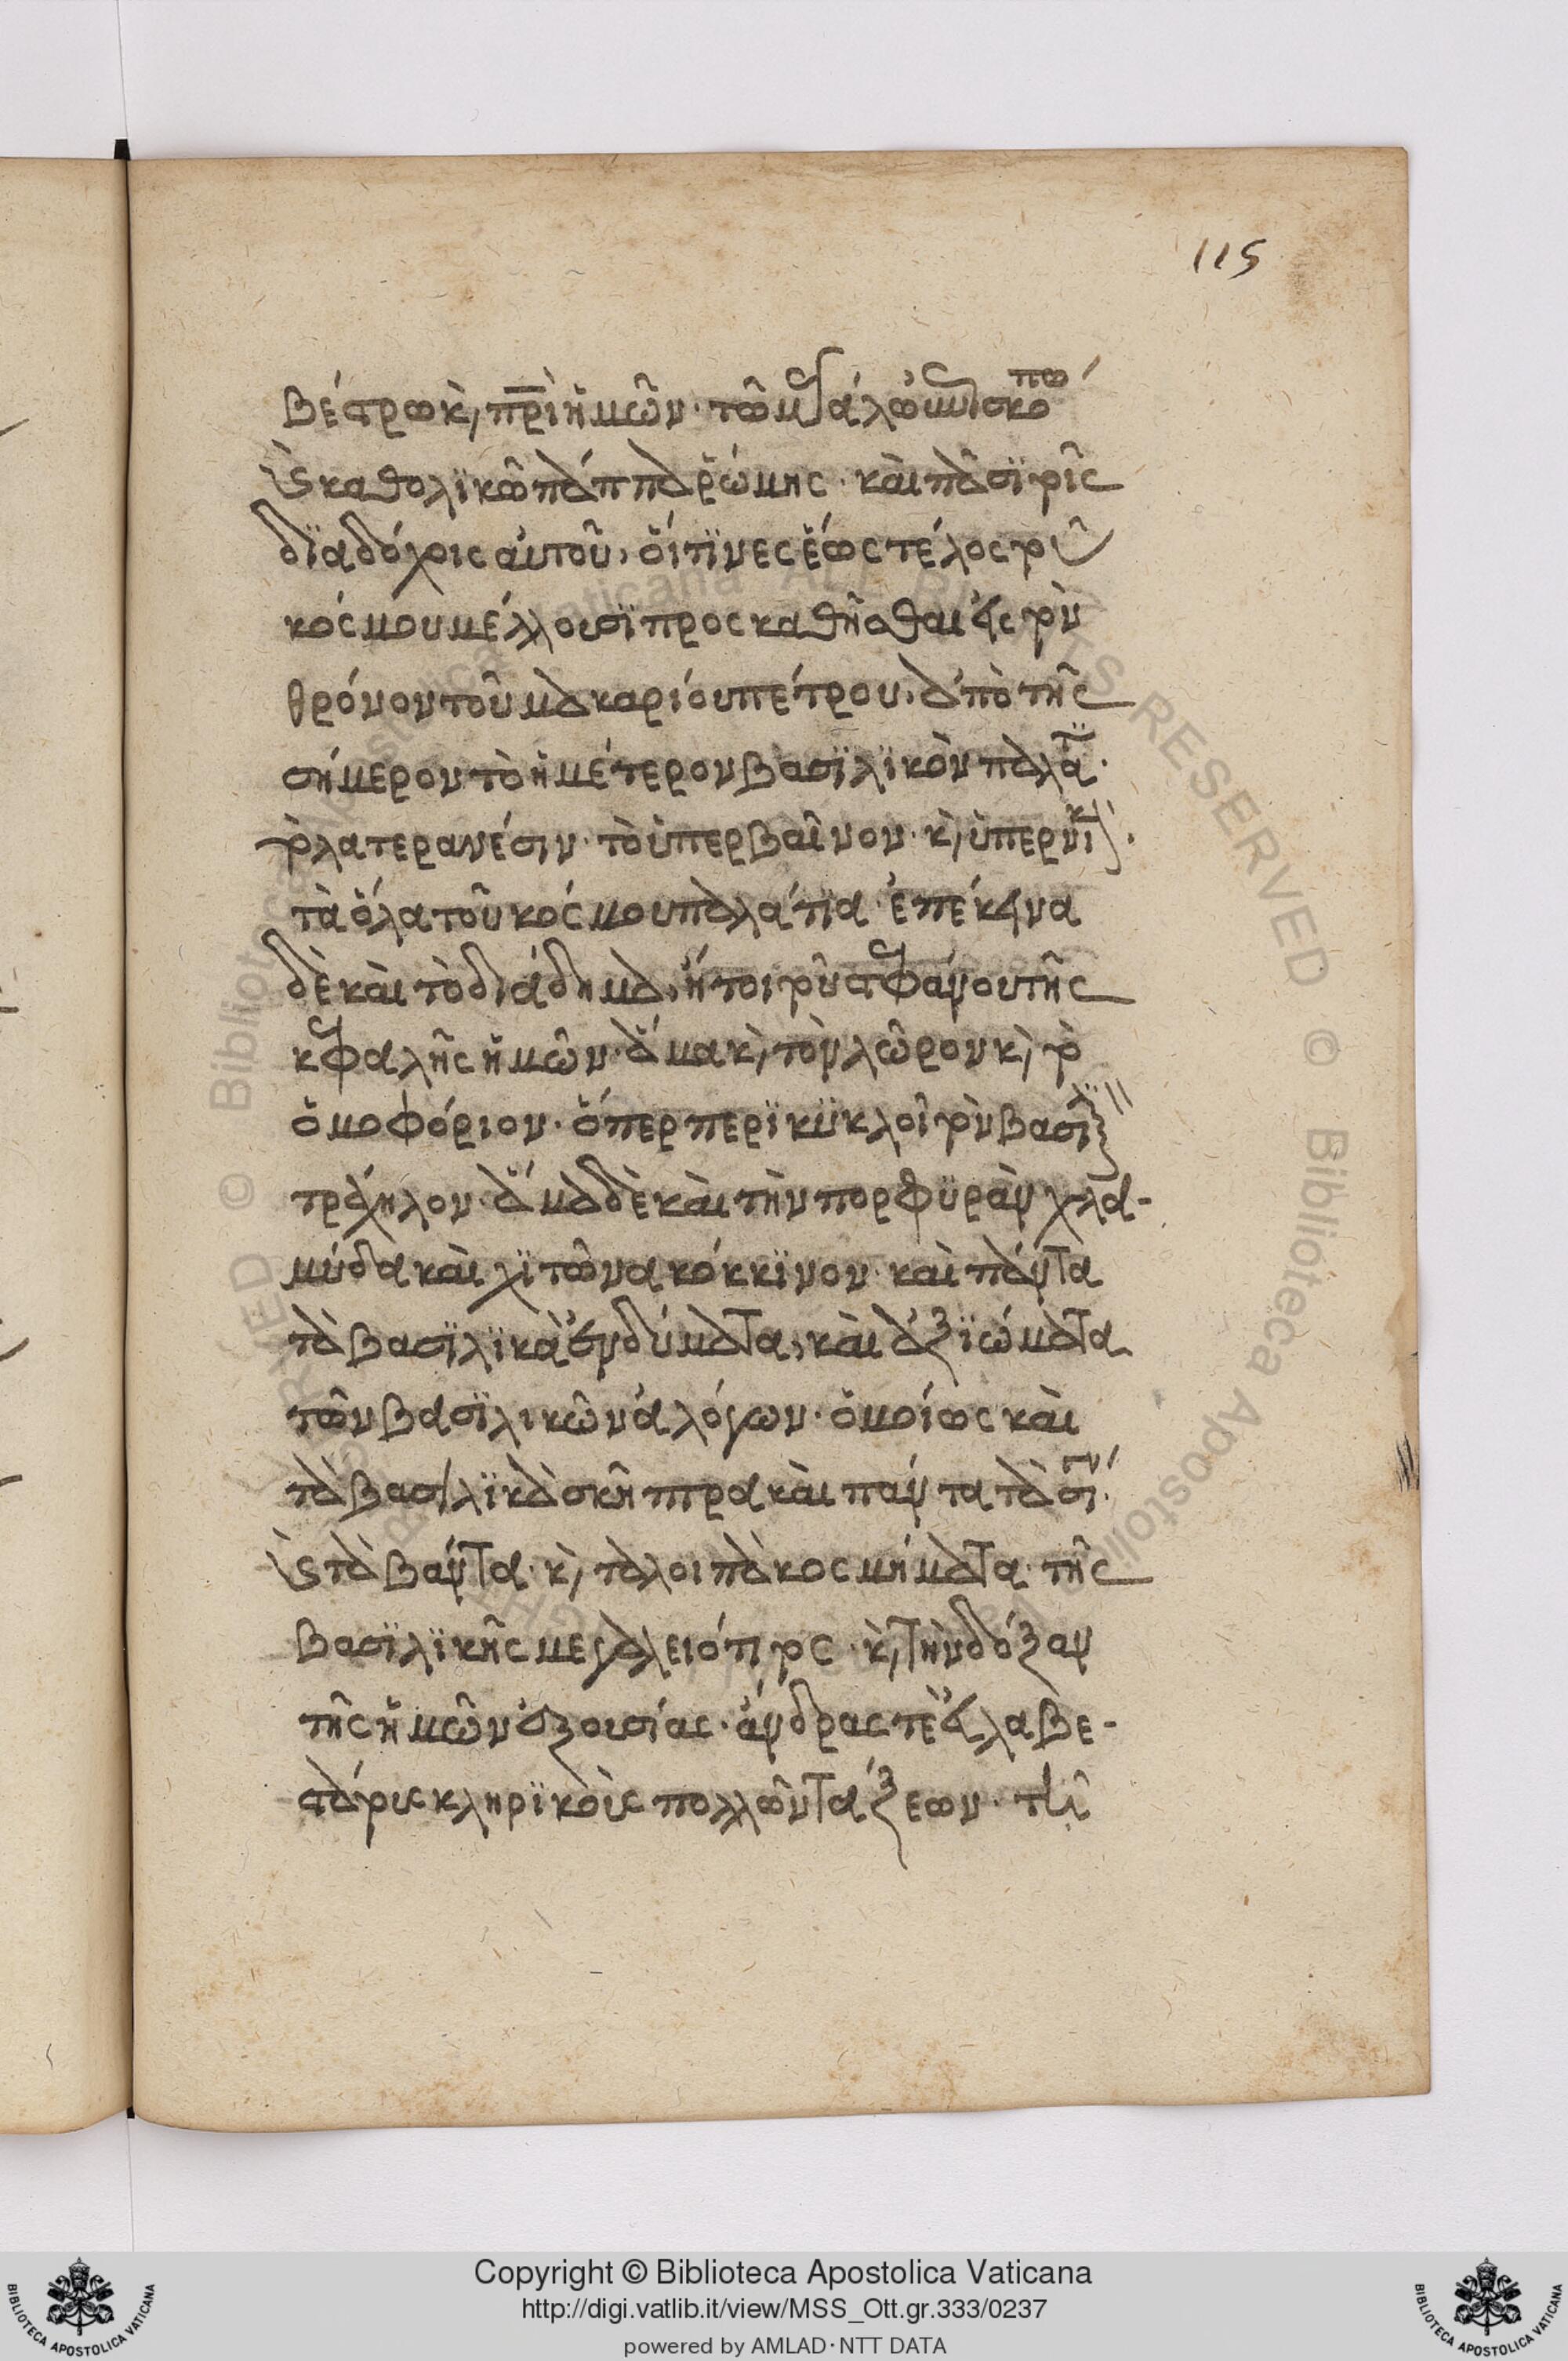 115
βέστρω κὲ, πρὶ ἡμῶν· τῶ μεγάλω ἐπισκόπω
κὲ καθολϊκῶ πάππα ῥώμης· καὶ πᾶσϊ τοῖς
δϊαδόχοις αὐτοῦ, οἵτϊνες ἕως τέλος τοῦ
κόσμου μέλλουσϊ προσκαθῆσθαι εἰς τὸν
θρόνον τοῦ μακαρίου πέτρου, ἀπὸ τῆς
σήμερον τὸ ἡμέτερον βασϊλϊκὸν παλάτϊ·
τὸ λατερανέσιν· τὸ ὑπερβαῖνον· κὲ, ὑπερνικ
τὰ ὅλα τοῦ κόσμου παλάτϊα· ἐπέκεινα
δὲ καὶ τὸ διάδημα, ἤτοι τοῦ στεφάνου τῆς
κεφαλῆς ἡμῶν· ἅμα κὲ, τὸν λῶρον κὲ, τὸ
ὁμοφόριον· ὅπερ περϊκϋκλοῖ τὸν βασιλ
τράχηλον· ἅμα δὲ καὶ τὴν πορφϋρὰν χλα-
μύδα καὶ χϊτῶνα κόκκϊνον· καὶ πάντα
τὰ βασϊλϊκὰ ἐνδύματα, καὶ ἀξϊώματα
τῶν βασϊλικῶν ἀλόγων· ὁμοίως καὶ
τὰ βασιλϊκὰ σκῆπτρα καὶ πάντα τὰ σιγν
κὲ τὰ βάντα· κὲ, τὰ λοιπὰ κοσμήματα· τῆς
βασϊλϊκῆς μεγαλειότητος· κὲ, τὴν δόξαν
τῆς ἡμῶν ἐξουσίας· ἄνδρας τὲ εὐλαβε-
στάτους κληρϊκοὺς πολλῶν τάξεων· τῆ
Copyright © Biblioteca Apostolica Vaticana
http://digi.vatlib.it/view/MSS_Ott.gr.333/0237
powered by AMLAD·NTT DATA
BIBLIOTECA APOSTOLICA VATICANA
BIBLIOTECA APOSTOLICA VATICANA